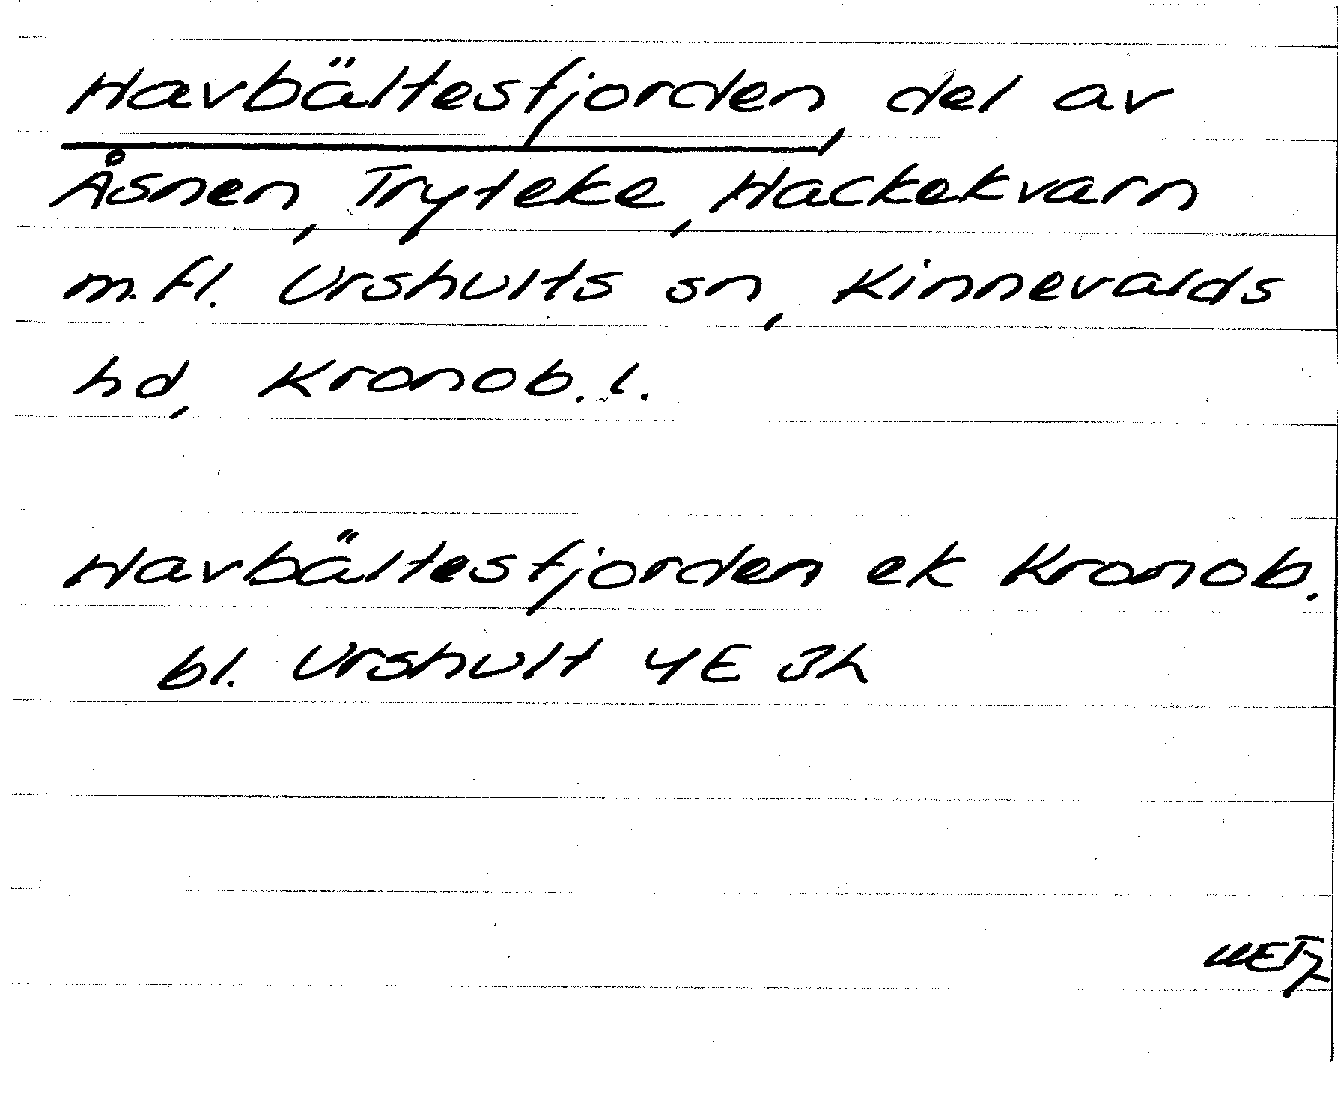 Havbältesfjorden, del av
Åsnen, Tryteke, Hackekvarn
m.fl. Urshults sn, Kinnevalds
hd, Kronob. l.
Havbältesfjorden ek Kronob.
bl. Urshult 4E 3h